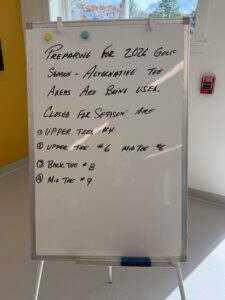 PREPARING FOR 2026 GOLF
SEASON - ALTERNATIVE TEE
AREAS ARE BEING USED.
CLOSED FOR SEASON ARE
① UPPER TEES #4
② UPPER TEE #6 MID TEE #6
③ BACK TEE #8
④ MID TEE #9